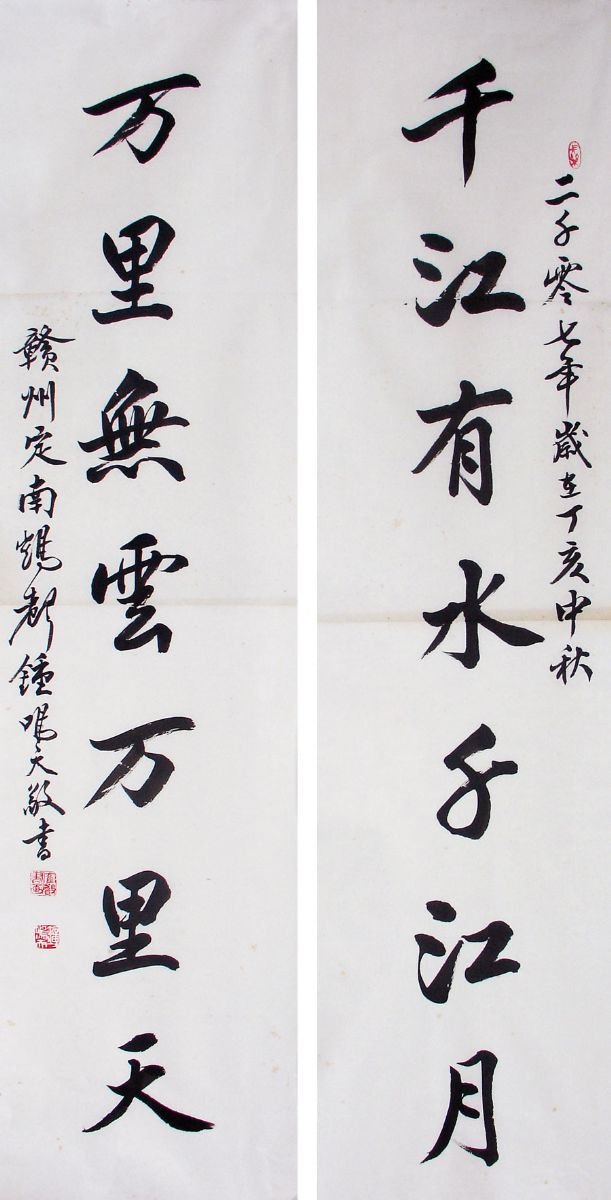 二千零七年歲在丁亥中秋
千江有水千江月
万里無雲万里天
赣州定南鵝都鍾鳴天敬書